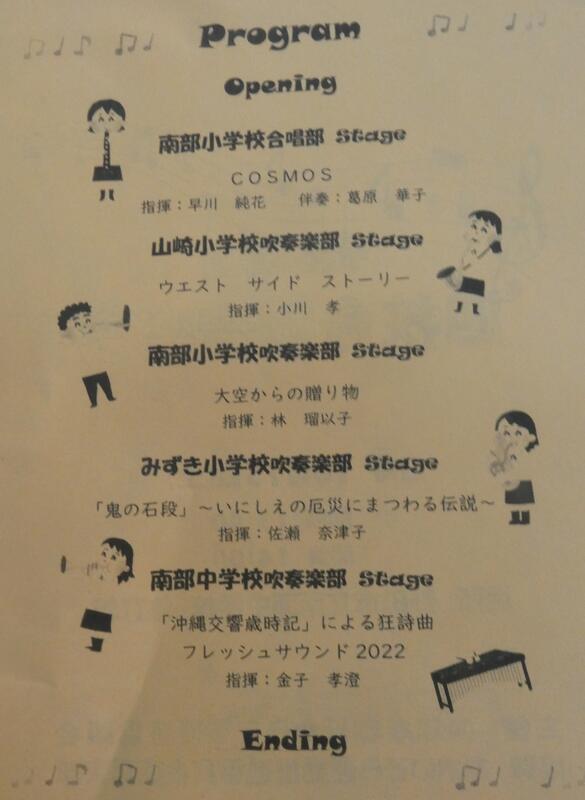 Program
Opening
南部小学校合唱部 Stage
COSMOS
指揮：早川　純花　　伴奏：葛原　華子
山崎小学校吹奏楽部 Stage
ウエスト　サイド　ストーリー
指揮：小川　孝
南部小学校吹奏楽部 Stage
大空からの贈り物
指揮：林　瑠以子
みずき小学校吹奏楽部 Stage
「鬼の石段」～いにしえの厄災にまつわる伝説～
指揮：佐瀬　奈津子
南部中学校吹奏楽部 Stage
「沖縄交響歳時記」による狂詩曲
フレッシュサウンド2022
指揮：金子　孝澄
Ending